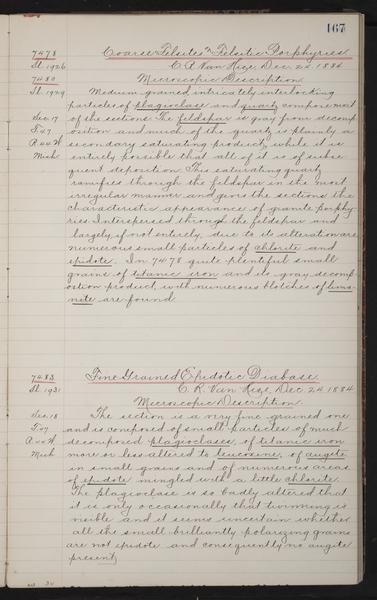 167
7478 Coarse Felsites Felsitic Porphyries.
Sl. 1926 C. R. Van Hise, Dec. 24. 1884
7480 Microscopic Description
Sl. 1929 Medium grained, intricately interlocking
particles of plagioclase and quartz compose most
Sec. 17 of the sections. The feldspar is gray from decomp
T. 47 osition and much of the quartz is plainly a
R 44 W secondary saturating product, while it is
Mich entirely possible that all of it is of subse
quent deposition. This saturating quartz
ramifies through the feldspar in the most
irregular manner and gives the sections the
characteristic appearance of granite porphy-
ries. Interspersed through the feldspar and
largely, if not entirely, due to its alteration are
numerous small particles of chlorite and
epidote. In 7478 quite plentiful small
grains of titanic iron and its gray decomp
osition product, with numerous blotches of limo-
nite are found.
7483 Fine Grained Epidotic Diabase.
Sl. 1931 C. R. Van Hise, Dec. 24. 1884
Microscopic Description
Sec. 18 The section is a very fine grained one
T. 47 and is composed of small particles of much
R 44 W decomposed plagioclases, of titanic iron
Mich more or less altered to leucoxine, of augite
in small grains and of numerous areas
of epidote mingled with a little chlorite.
The plagioclase is so badly altered that
it is only occasionally that twinning is
visible and it seems uncertain whether
all the small brilliantly polarizing grains
are not epidote and consequently no augite
present.